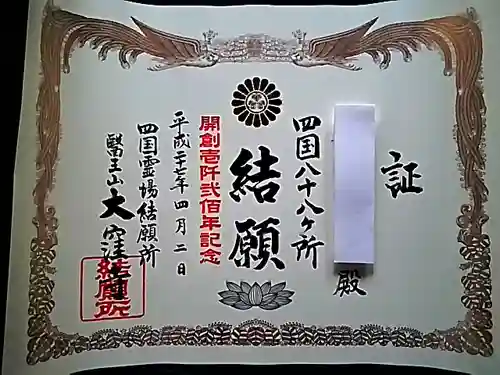 証
殿
四国八十八ヶ所
結願
開創壱阡弐佰年記念
平成二十七年四月二日
四国霊場結願所
醫王山大窪寺
結願所